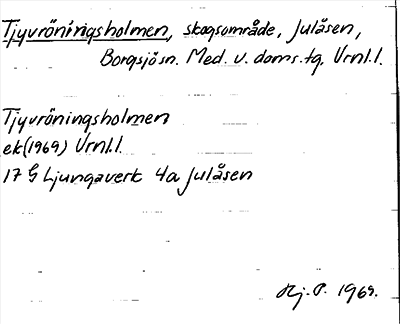 Tjyvröningsholmen, skogsområde, Julåsen,
Borgsjö sn. Med. v. doms. tg. Vrnl.l.
Tjyvröningsholmen
ek (1969) Vrnl.l.
17 G Ljungaverk 4a Julåsen
Hj. P. 1969.